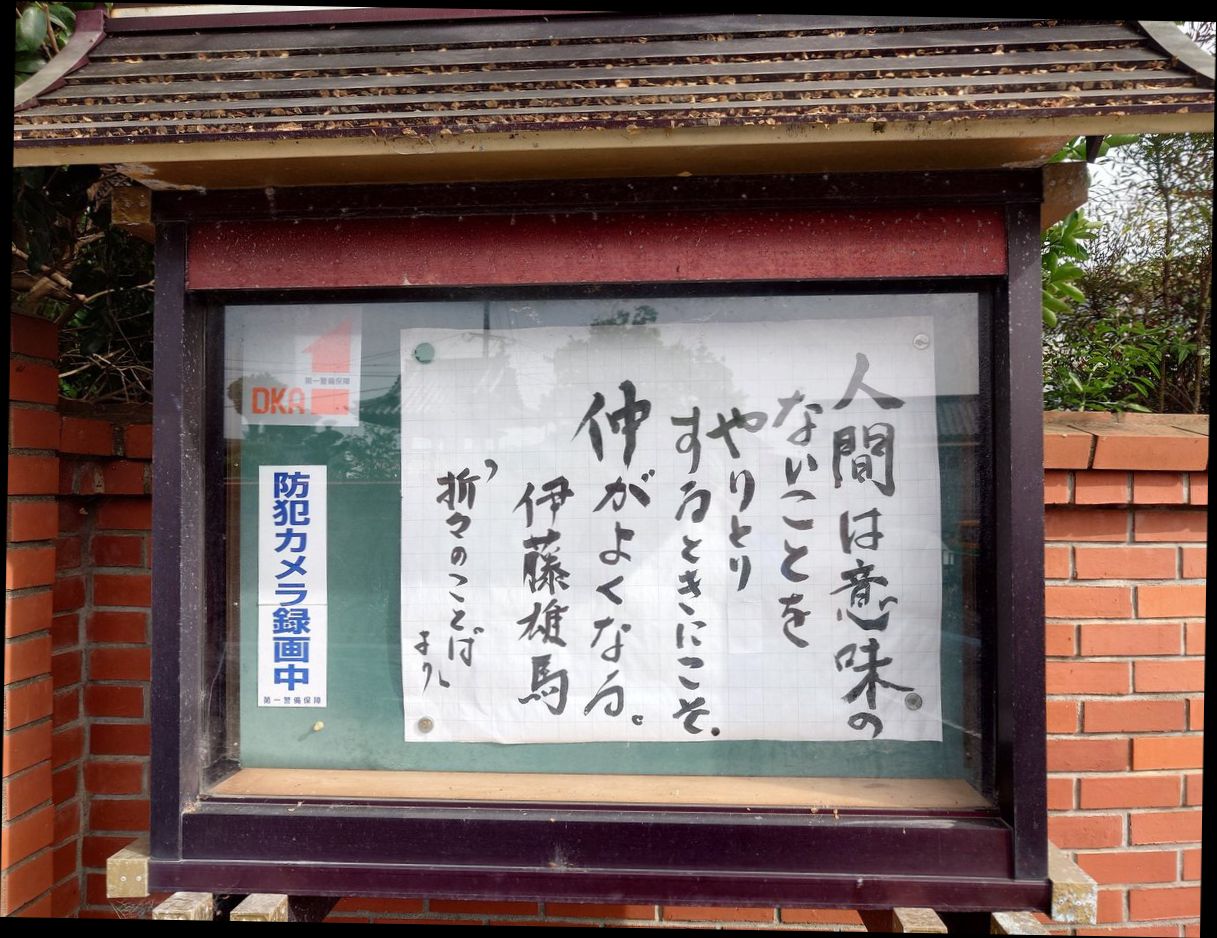 人間は意味の
ないことを
やりとり
するときにこそ、
仲がよくなる。
伊藤雄馬
「折々のことば
より」
第一警備保障
DKA
防犯カメラ録画中
第一警備保障